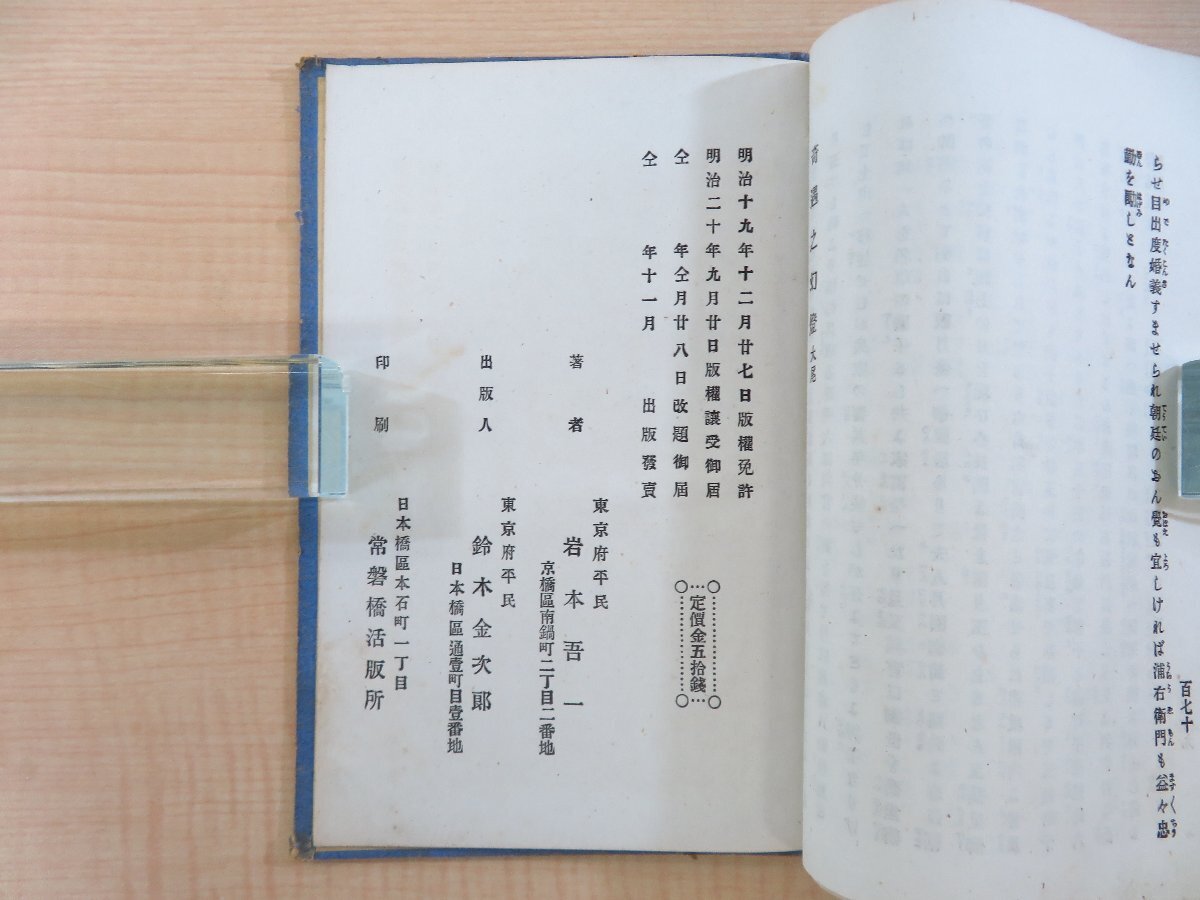 百七十
らせ目出度婚義すませられ朝廷のおん覺も宜しければ浦右衛門も益々忠
勤を勵しとなん
奇遇之幻燈 大尾
明治十九年十二月廿七日版權免許
明治二十年九月廿日版權讓受御屆
仝 年仝月廿八日改題御屆
仝 年十一月 出版發賣
定價金五拾錢
著者 東京府平民
岩本吾一
京橋區南鍋町二丁目二番地
出版人 東京府平民
鈴木金次郎
日本橋區通壹町目壹番地
印刷 日本橋區本石町一丁目
常磐橋活版所